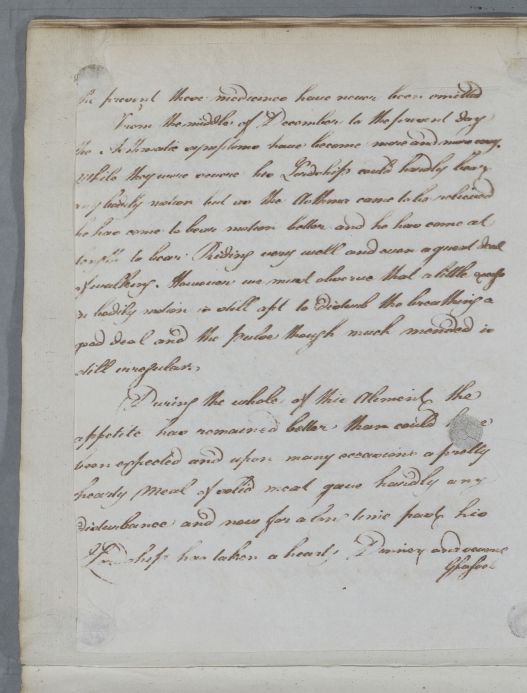 the present these medicines have never been omitted
From the middle of December to the present day
the Asthmatic symptoms have become more and more easy.
While they were severe his Lordship could hardly bear
any bodily motion but as the Asthma came to be relieved
he has come to bear motion better and he has come at
length to bear Riding very well and even a great deal
of walking. However we must observe that a little excess
in bodily motion is still apt to disturb the breathing a
good deal and the pulse though much mended is
still irregular.
During the whole of this Ailment the
appetite has remained better than could have
been expected and upon many occasions a pretty
hearty Meal of solid meat gave hardly any
disturbance and now for a long time past his
Lordship has taken a hearty Dinner and